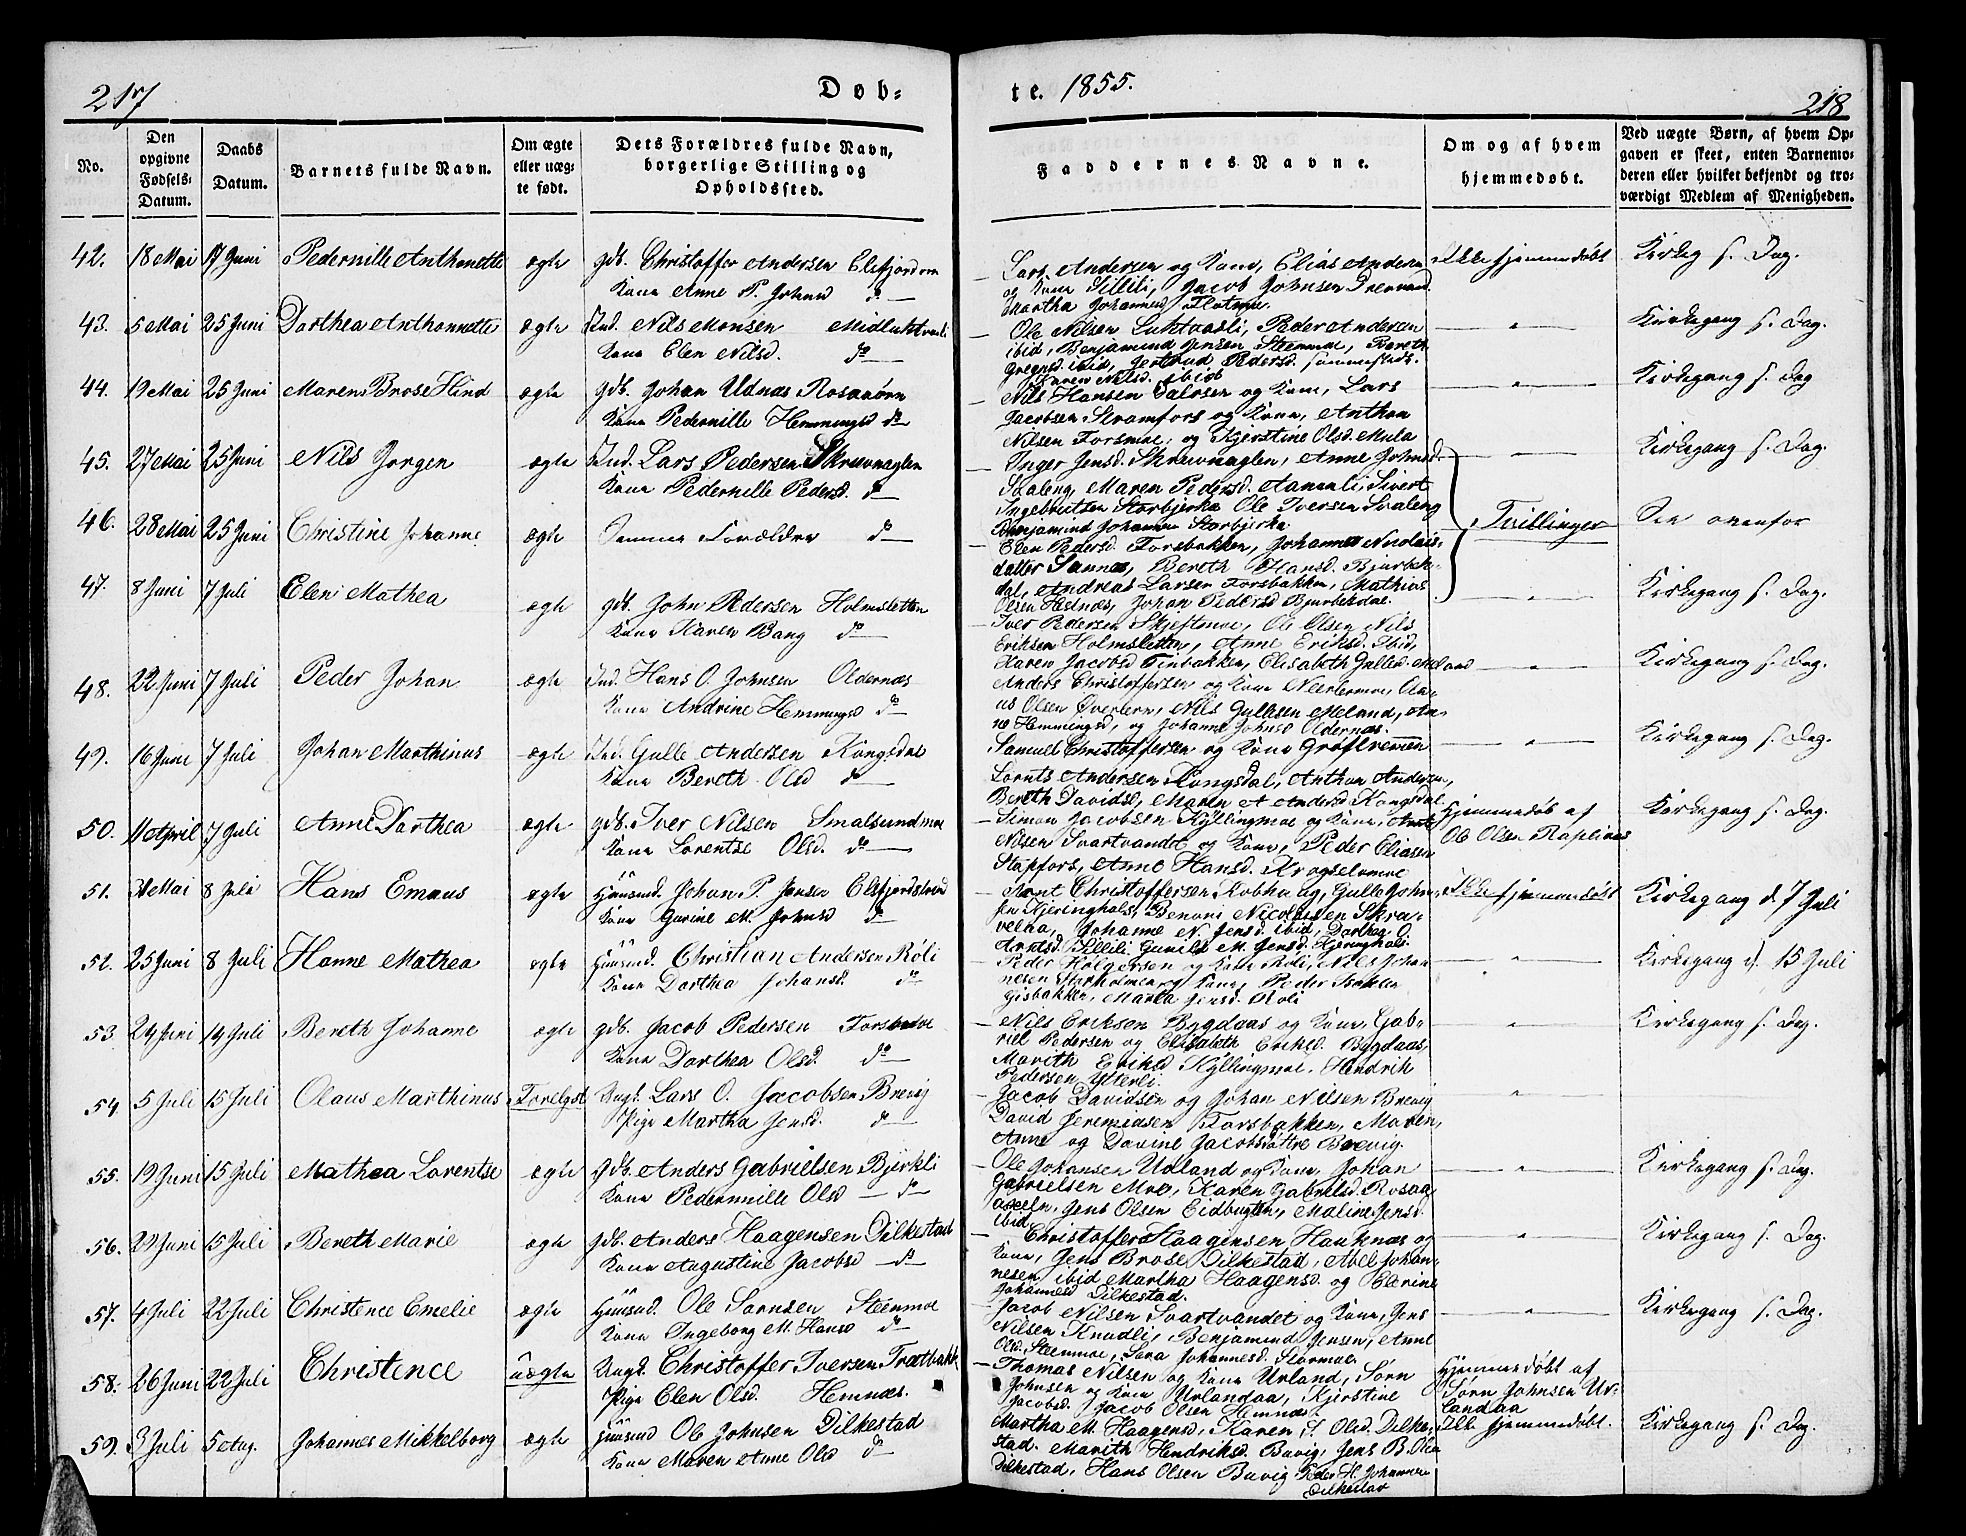 217
Døb-
No.
Den
opgivne
Fødsels-
Datum.
Daabs
Datum.
Barnets fulde Navn.
Om ægte
eller uæg-
te født.
Dets Forældres fulde Navn,
borgerlige Stilling og
Opholdssted.
42. 18 Mai 17 Juni Pedernille Anthonette ægte gdb. Christoffer Andersen
Kone Anne P. Johnsd do
43. 5 Mai 25 Juni Dorthea Anthonnette ægte Ind. Nils Monsen
Kone Elen Nilsd. do
44. 19 Mai 25 Juni Maren Brose Hind ægte gdb. Johan Udnæs Rosaaøren
Kone Pedernille Hemmingsd do
45. 27 Mai 25 Juni Nils Jørgen ægte Ind. Lars Pedersen Skruvnaglen
Kone Pedernille Pedersd. do
46. 28 Mai 25 Juni Christine Johanne ægte Samme Forældre do
47. 8 Juni 7 Juli Elen Mathea ægte gdb. John Pedersen Holmsletten
Kone Karen Bang do
48. 22 Juni 7 Juli Peder Johan ægte Ind. Hans O. Johnsen Oldernæs
Kone Andrine Hemmingsd do
49. 16 Juni 7 Juli Johan Marthinus ægte Ind. Gulle Andersen Kongsdal
Kone Bereth Olsd do
50. 11 April 7 Juli Anne Dorthea ægte gdb. Iver Nilsen Smalsundmoe
Kone Lorentse Olsd. do
51. Mai 8 Juli Hans Emaus ægte Huusmd. Johan P. Jensen
Kone Gurine M. Johnsd do
52. 25 Juni 8 Juli Hanne Mathea ægte Huusmd. Christian Andersen Røli
Kone Dorthea Johansd. do
53. 24 Juni 14 Juli Bereth Johanne ægte gdb. Jacob Pedersen
Kone Dorthea Olsd. do
54. 5 Juli 15 Juli Olaus Marthinus Ungk. Lars O. Jacobsen Brevig
Pige Martha Jensd. do
55. 19 Juni 15 Juli Mathea Lorentse ægte gdb. Anders Gabrielsen Bjerkli
Kone Pedernnille Olsd do
56. 24 Juni 15 Juli Bereth Marie ægte gdb. Anders Haagensen Dilkestad
Kone Augustine Jacobsd do
57. 4 Juli 22 Juli Christence Emelie ægte Huusmd. Ole Sørnsen Steenmoe
Kone Ingeborg M. Hansd do
58. 26 Juni 22 Juli Christence uægte Ungk. Christoffer Iversen
Pige Elen Olsd. Hemnæs.
59. 3 Juli 5 Aug. Johannes Mikkelborg ægte Huusmd Ole Johnsen Dilkestad
Kone Maren Anne Olsd do
te. 1855.
218
Faddernes Navne.
Om og af hvem
hjemmedøbt.
Ved uægte Børn, af hvem Op-
gaven er skeet, enten Barnemo-
deren eller hvilket bekjendt og tro-
værdigt Medlem af Menigheden.
Lars Andersen og Kone, Elias Andersen Ikke hjemmedøbt Kirkeg s. Dag.
og Kone Lillili, Jacob Johnsen
Martha Johannesd
Ole Nilsen Luktvasli, Peder Andersen Kirkegang s. Dag.
ibid, Benjamind Jensen Steenmoe, Bereth
Gregusd. ibid, Gertrud Pedersd. sammesteds.
Karen Nilsd. ibid
Nils Hansen og Kone, Lars Kirkegang s. Dag
Jacobsen Skramfors og Kone, Anthon
Nilsen Forsmoe, og Kjerstine Olsd. Mula
Inger Jensd. Skruvnaglen, Anne Johnsd. Kirkegang s. Dag.
Svaleng, Maren Pedersd. Aanesli, Sivert
Ingebrigtsen Storbjerka Ole Iversen Svaleng
Benjamind Johannesen Storbjerka
Tvillinger See ovenfor
Elen Pedersd. Forsbakken, Johanne Nicolais-
datter Sannæs, Bereth Hansd. Bjurbek-
dal, Andreas Larsen Forsbakken, Mathias
Olsen Hestnæs, Johan Pedersd Bjurbekdal.
Iver Pedersen Skjeftmoe, Ole Olsen, Nils Kirkegang s. Dag.
Eriksen Holmsletten, Anne Eriksd. Ibid,
Karen Jacobsd Finbakken, Elisabeth Gullesd. Meland
Anders Christoffersen og Kone Kirkegang s. Dag.
us Olsen Øverleir, Nils Gullesen Meland, An-
ne Hemmingsd, og Johanne Johnsd Oldernæs.
Samuel Christoffersen og Kone Groftremmen Kirkegang s. Dag.
Lornts Andersen Kongsdal, Anthon Andersen,
Bereth Davidsd, Maren A Andersd Kongsdal.
Simon Jacobsen Kyllingmoe og Kone, Arnt Hjemmedøb af Kirkegang s. Dag.
Nilsen Svartvandet og Kone, Peder Eliasen Ole Olsen
Stabfors, Anne Hansd. Krogselvmoe
Arnt Christoffersen Kobhaug, Gulle John- Ikke hjemmedøbt Kirkegang d. 7 Juli
sen Kjeringhals, Benoni Nicolaisen Skra-
velna, Johanne N. Jensd. ibid, Dorthea O.
Arntsd. Lillili, Gunild M. Jensd. Kjeringhals.
Peder Holgersen og Kone Røli, Nils Johan- Kirkegang d. 15 Juli
nesen Storholmen og Kone, Peder Isaksen
Gisbakken, Maria Jensd. Røli
Nils Eriksen Bygdaas og Kone, Gab- Kirkegang s. Dag.
riel Pedersen og Elisabeth Eriksd. Bygdaas,
Marith Eriksd Kyllingmoe, Hendrik
Pedersen Ytterli.
Jacob Davidsen og Johan Nilsen Brevig
David Jeremiasen Forsbakken, Maren,
Anne og Davine Jacobsdøttre Brevig.
Ole Johansen Urland og Kone, Johan Kirkegang s. Dag.
Gabrielsen Moe, Karen Gabrielsd. Rosaa-
auren, Jens Olsen Eidbugten, Maline Jensd.
ibid.
Christoffer Haagensen Hauknæs og Kirkegang s. Dag.
Kone, Jens Brose Dilkestad, Abel Johan-
nesen ibid Martha Haagensd. og Elerine
Johannesd Dilkestad.
Jacob Nilsen Svartvandet og Kone, Jens Kirkegang s. Dag.
Nilsen Knudli, Benjamind Jensen, Anne
Olsd. Steenmoe, Sara Johannesd. Stormoe.
Thomas Nilsen og Kone Urland, Sørn Hjemmedøbt af
Johnsen og Kone Urlandaa, Kjerstine Sørn Johnsen Ur-
Jacobsd. Jacob Olsen Hemnæs landaa
Martha M. Haagensd, Karen J. Olsd. Dilke- Ikke hjemmedøbt. Kirkegang s. Dag.
stad. Marith Hendriksd. Buvig, Jens B. Olsen
Dilkestad, Hans Olsen Buvig Peder H. Johannesen
Dilkestad